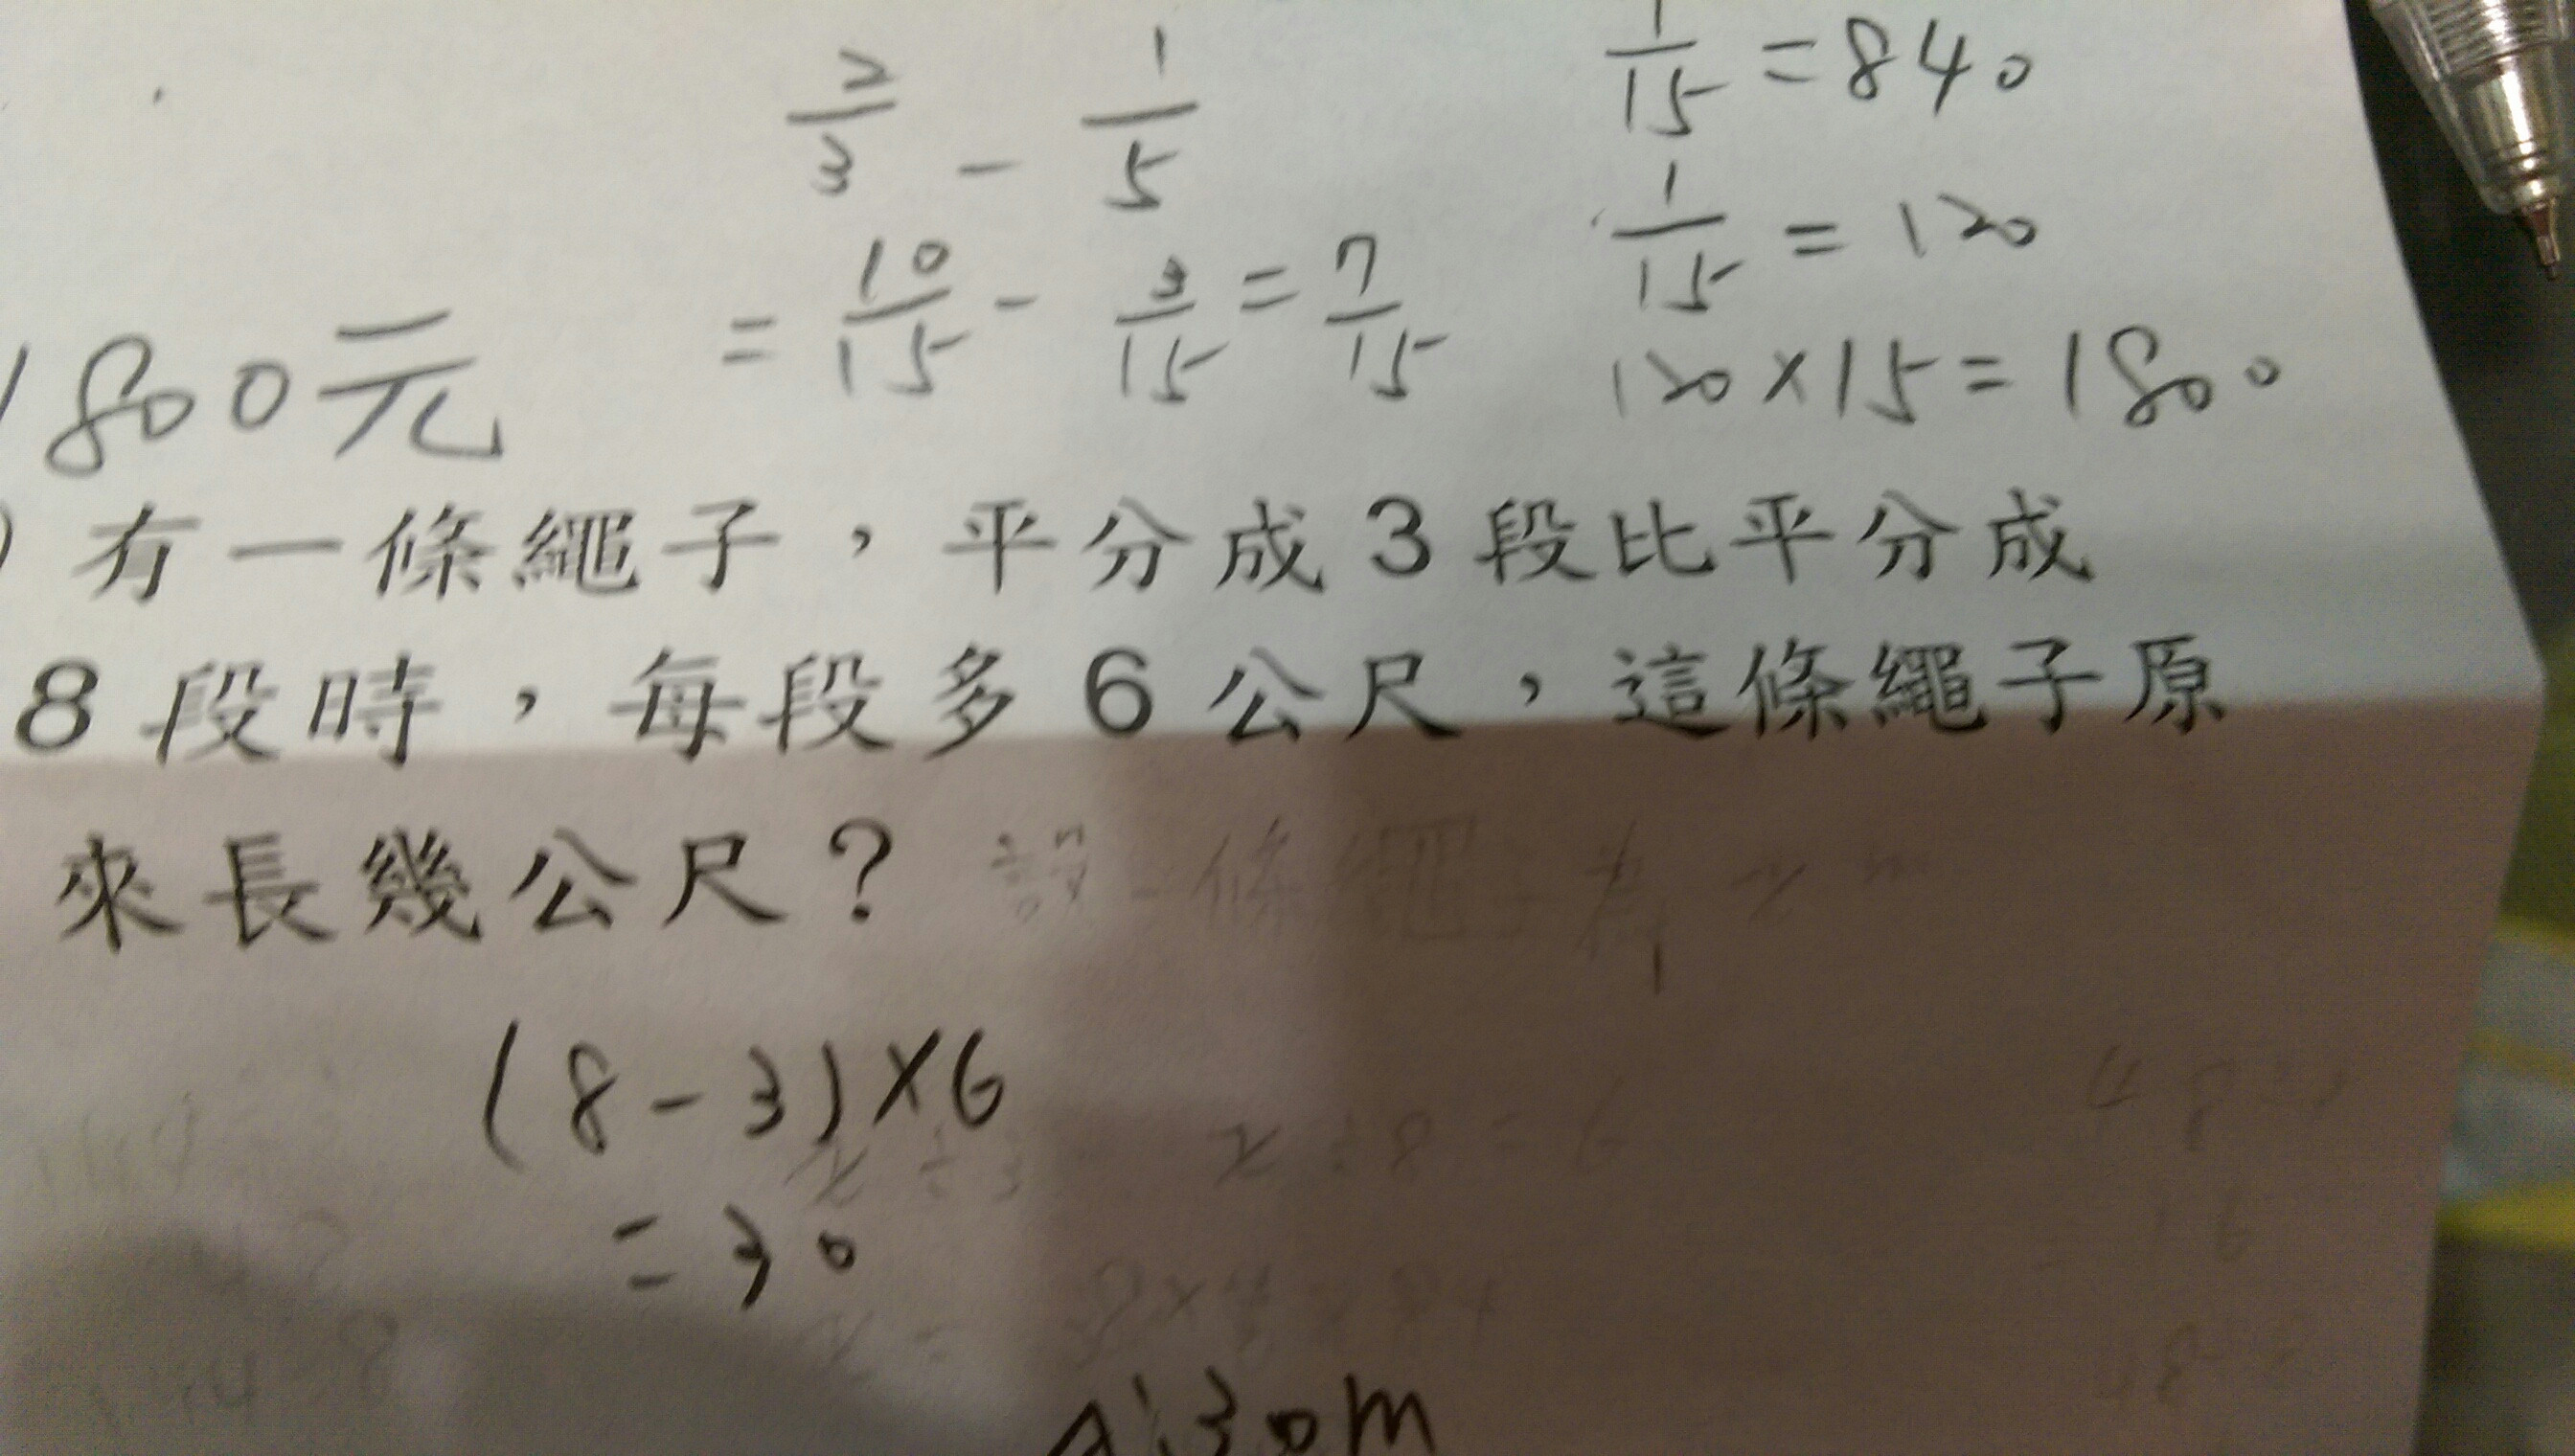 2/3 - 1/5
1/15 = 840
= 10/15 - 3/15 = 7/15
1/15 = 120
120×15=1800
1800元
) 有一條繩子，平分成3段比平分成
8段時，每段多6公尺，這條繩子原
來長幾公尺？
(8-3)×6
=30
A:30m